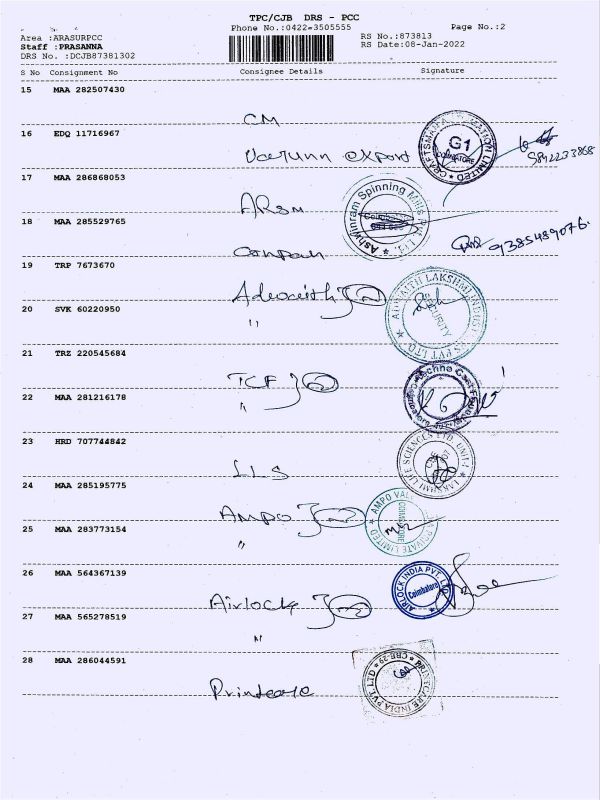 TPC/CJB DRS - PCC
Phone No.:0422-3505555
Page No.:2
Area :ARASURPCC
RS No.:873813
Staff :PRASANNA
RS Date:08-Jan-2022
DRS No. :DCJB87381302
S No Consignment No Consignee Details Signature
15 MAA 282507430
CM
16 EDQ 11716967
export
G1
COIMBATORE
17 MAA 286868053
ARSM
Ashwinram Spinning Mills Pvt. Ltd.
18 MAA 285529765
9385489076
19 TRP 7673670
LAKSHMI
SECURITY
20 SVK 60220950
"
21 TRZ 220545684
TCF
22 MAA 281216178
"
23 HRD 707744842
LLS
LAKSHMI LIFE SCIENCES LTD. UNIT-I
24 MAA 285195775
AMPO
AMPO PRIVATE LIMITED
25 MAA 283773154
"
26 MAA 564367139
Airlock
AIRLOCK INDIA PVT. LTD
Coimbatore
27 MAA 565278519
"
28 MAA 286044591
Printcare
PRINTCARE INDIA PVT. LTD
CBE-29